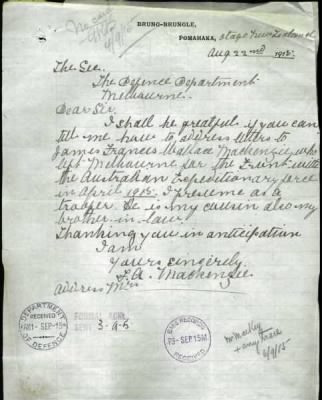 BRUNO-BRUNGLE,
POMAHAKA, Otago New Zealand
Aug 22nd 1915.
No card
4/9/15
The Sec.
The Defence Department
Melbourne.
Dear Sir,
I shall be greatful if you can
tell me how to address letters to
James Francis Mackenzie, who
left Melbourne for the Front with
the Australian Expeditionary force
in April 1915. I presume as a
trooper. He is my cousin also my
brother in law.
Thanking you in anticipation
I am
Yours sincerely.
A. Mackenzie.
address Mrs
DEPARTMENT
RECEIVED
SEP 15
OF DEFENCE
FORMAL ACKL.
SENT 3-9-5
BASE RECORDS
3-SEP.15
RECEIVED
any trace
4/9/15